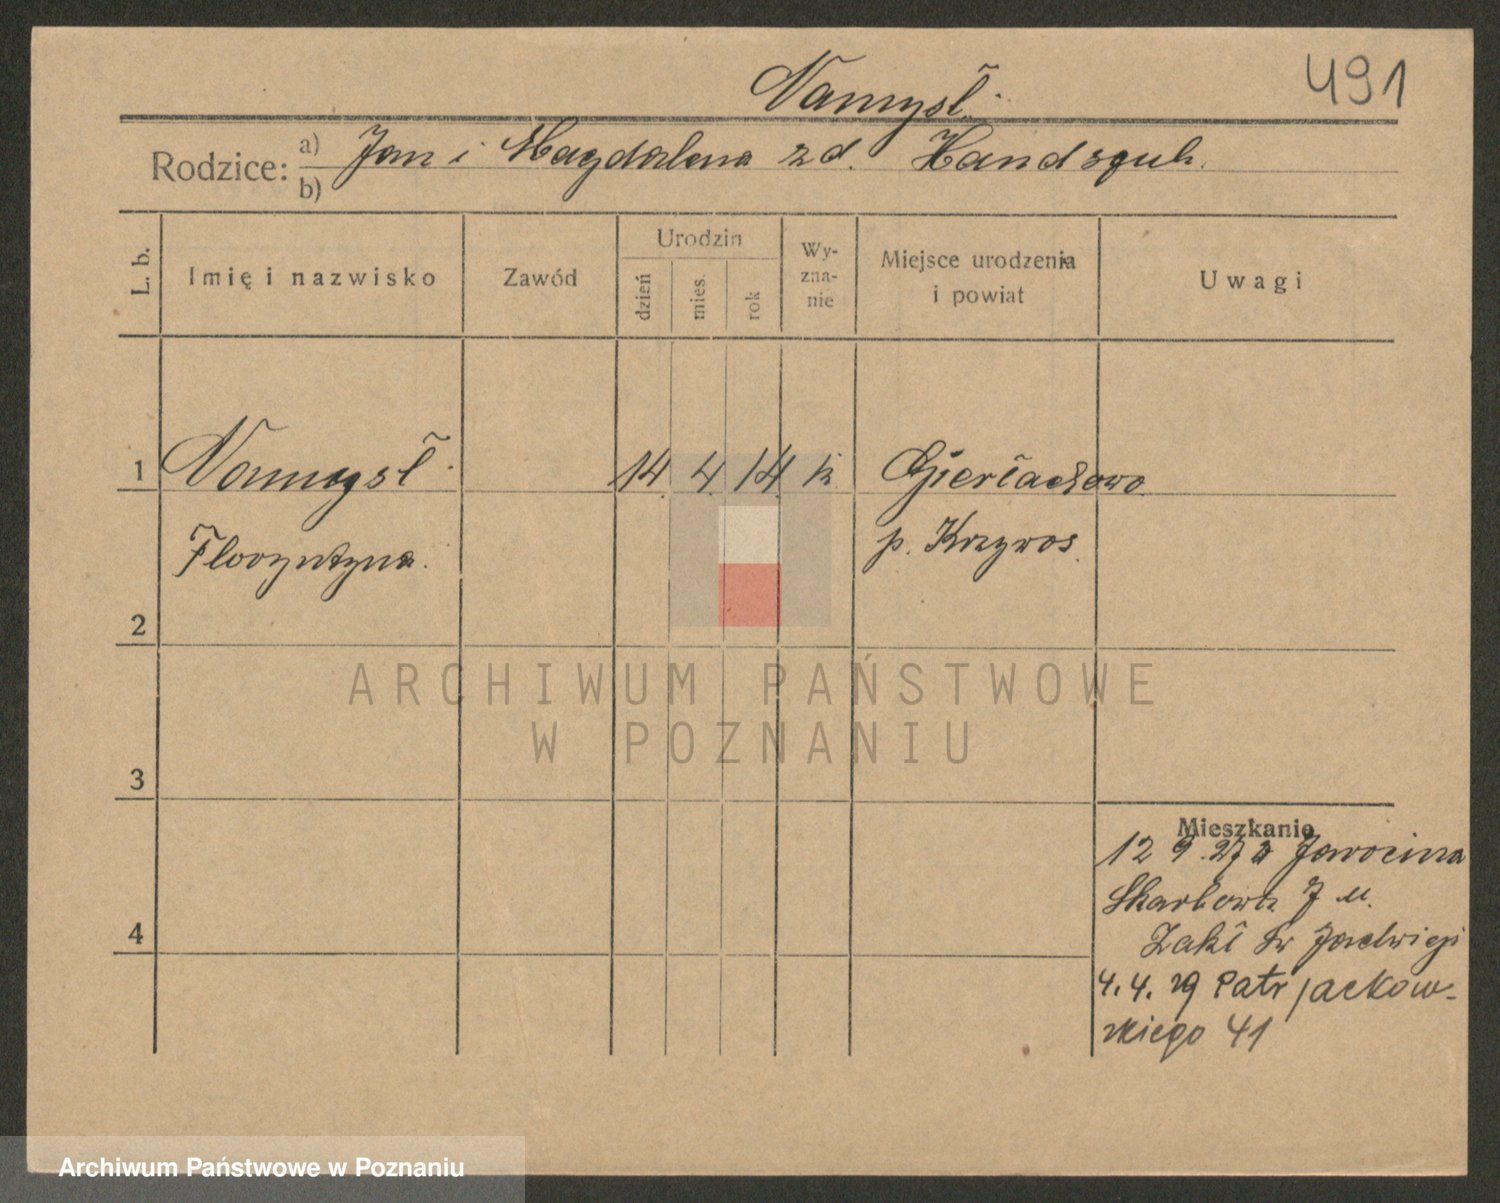 491
Namysł.
Rodzice: a) Jan i Magdalena zd. Handszuh.
b)
L. b.
Imię i nazwisko
Zawód
Urodzin
dzień
mies.
rok
Wy-
zna-
nie
Miejsce urodzenia
i powiat
Uwagi
1 Namysł. 14 4 14 k Gierłachowo
Florentyna. p. Krzywos.
2
3
4
Mieszkanie
12 9. 27 z Jarocina
Skarbowa 7 u.
Zakł św Jadwigi
4. 4. 29 Patr Jackow-
skiego 41
ARCHIWUM PAŃSTWOWE
W POZNANIU
Archiwum Państwowe w Poznaniu